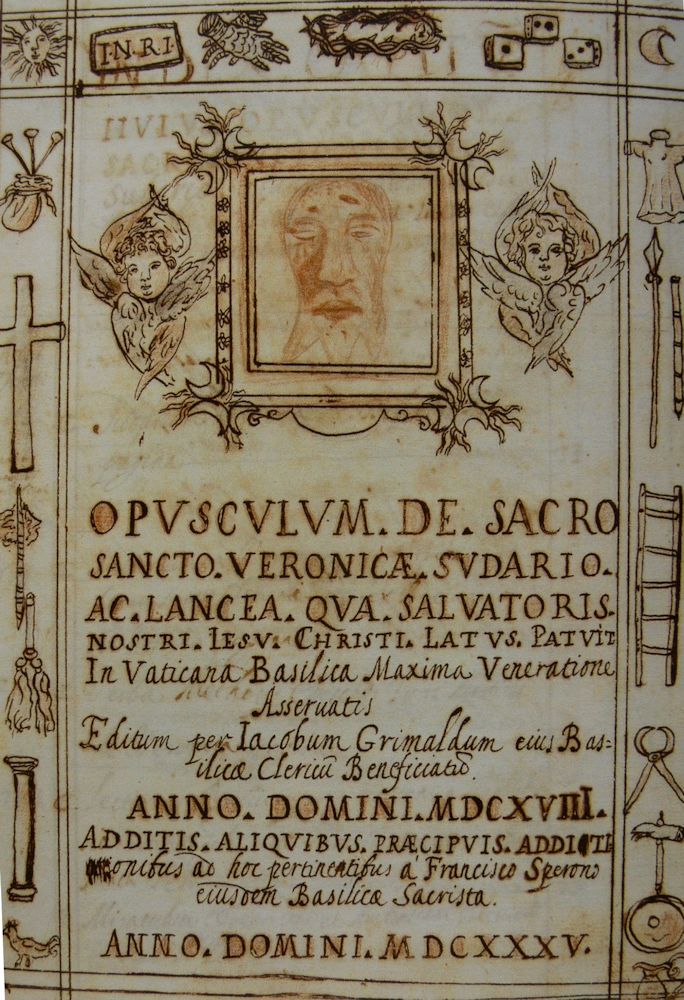 I.N.R.I
OPVSCVLVM. DE. SACRO
SANCTO. VERONICÆ. SVDARIO.
AC. LANCEA. QVA. SALVATORIS.
NOSTRI. IESV. CHRISTI. LATVS. PATVIT
In Vaticana Basilica Maxima Veneratione
Asseruatis
Editum per Iacobum Grimaldum eius Bas=
ilicæ Clericũ Beneficiatũ.
ANNO. DOMINI. MDCXVIII.
ADDITIS. ALIQVIBVS. PRÆCIPVIS. ADDICTI
onibus ad hoc pertinentibus á Francisco Sperono
eiusdem Basilicæ Sacrista.
ANNO. DOMINI. MDCXXXV.